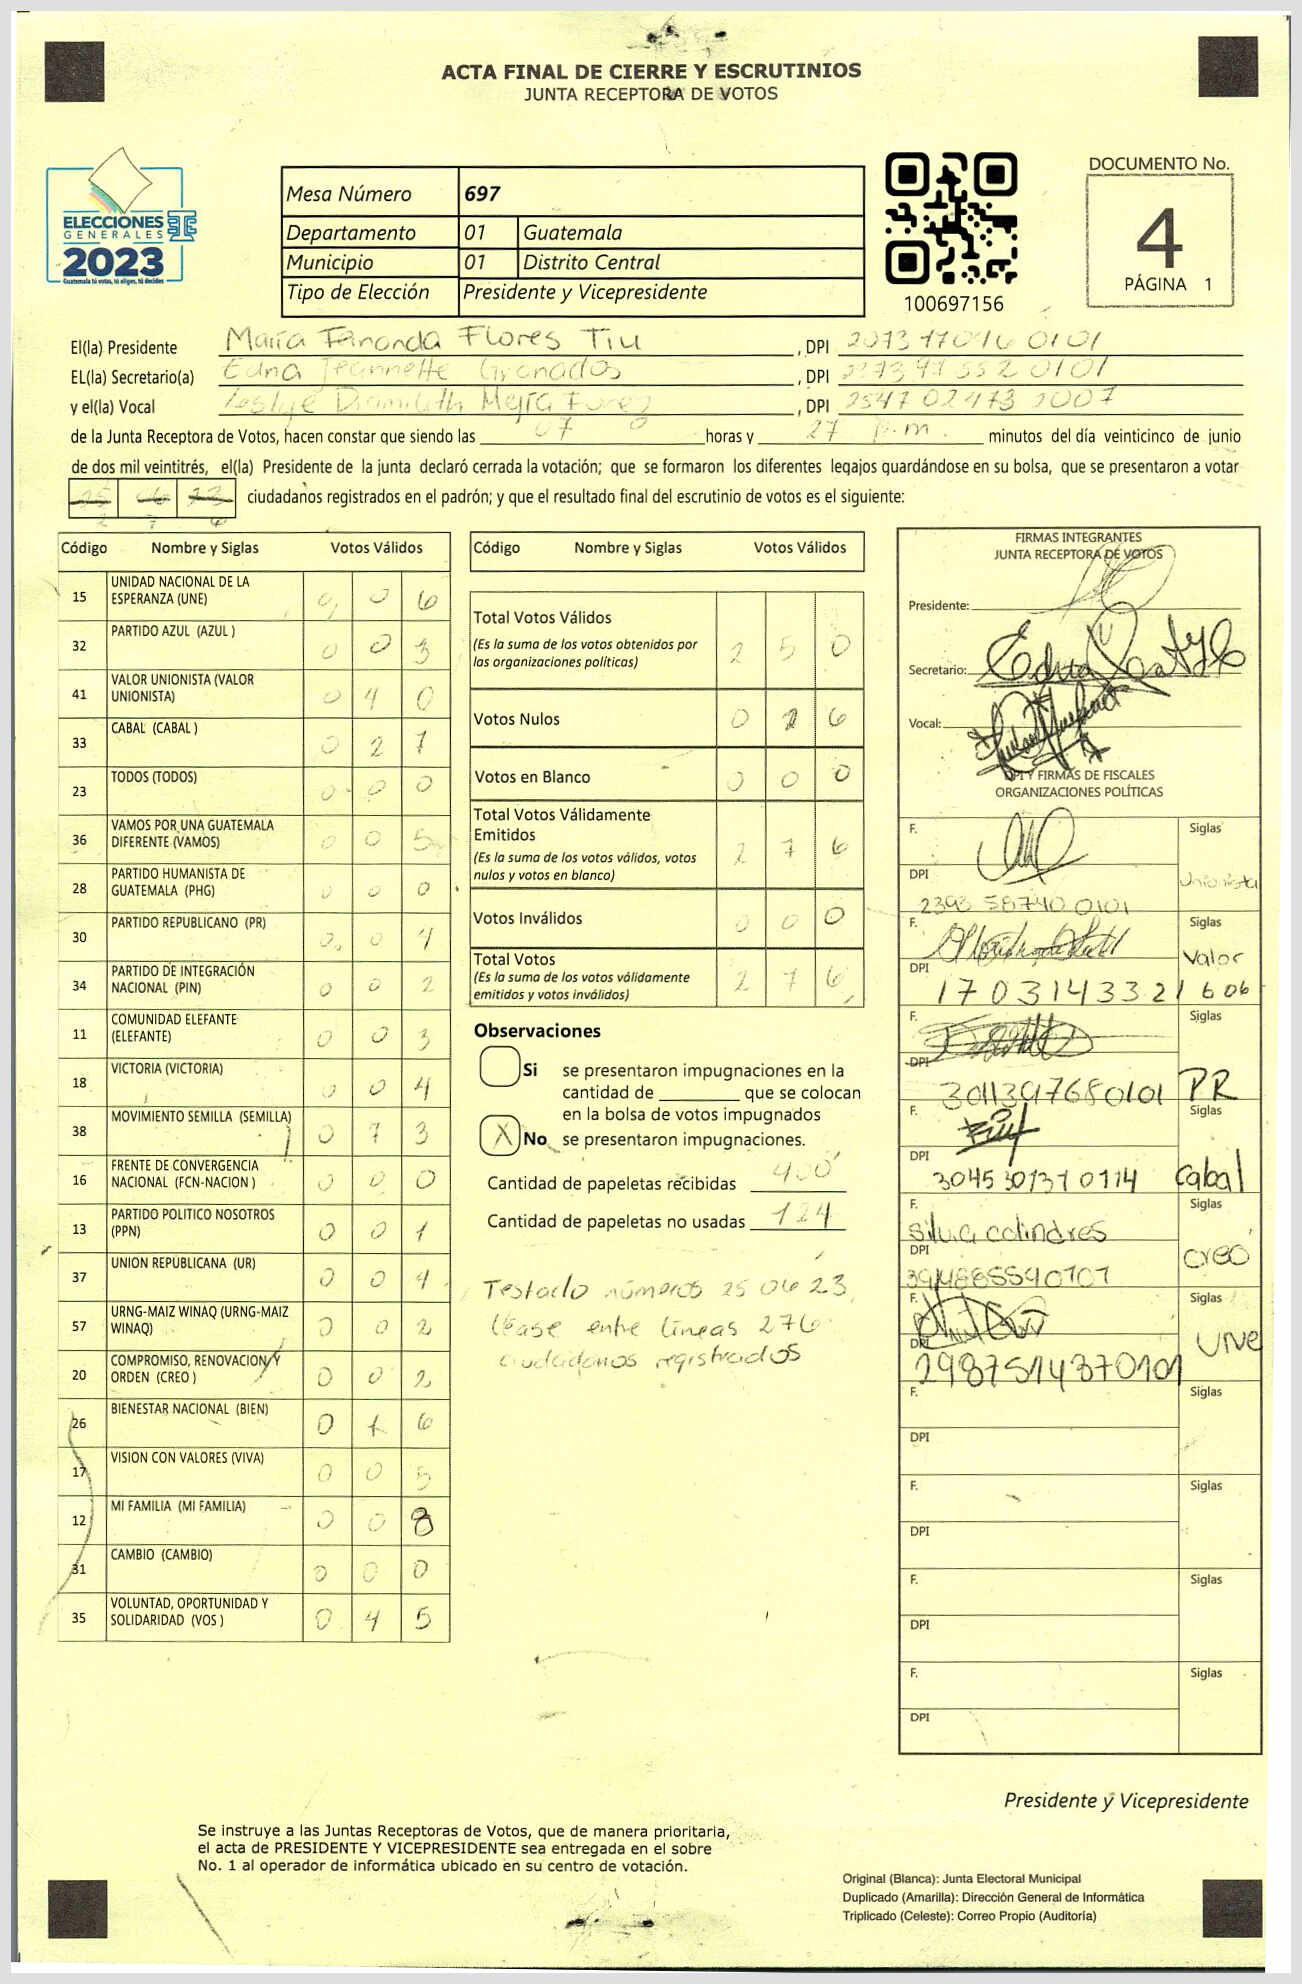 ACTA FINAL DE CIERRE Y ESCRUTINIOS
JUNTA RECEPTORA DE VOTOS
ELECCIONES
GENERALES
2023
Guatemala tú votas, tú eliges, tú decides
Mesa Número 697
Departamento 01 Guatemala
Municipio 01 Distrito Central
Tipo de Elección Presidente y Vicepresidente
100697156
DOCUMENTO No.
4
PÁGINA 1
El(la) Presidente María Fernanda Flores Tiu , DPI
EL(la) Secretario(a) Edna Jeannette Granados , DPI
y el(la) Vocal Mejía , DPI 2547 02473 2007
de la Junta Receptora de Votos, hacen constar que siendo las 07 horas y 27 p.m. minutos del día veinticinco de junio
de dos mil veintitrés, el(la) Presidente de la junta declaró cerrada la votación; que se formaron los diferentes legajos guardándose en su bolsa, que se presentaron a votar
25 06 23 ciudadanos registrados en el padrón; y que el resultado final del escrutinio de votos es el siguiente:
2 7 6
Código Nombre y Siglas Votos Válidos
15 UNIDAD NACIONAL DE LA ESPERANZA (UNE) 0 0 6
32 PARTIDO AZUL (AZUL ) 0 0 3
41 VALOR UNIONISTA (VALOR UNIONISTA) 0 4 0
33 CABAL (CABAL ) 0 2 7
23 TODOS (TODOS) 0 0 0
36 VAMOS POR UNA GUATEMALA DIFERENTE (VAMOS) 0 0 5
28 PARTIDO HUMANISTA DE GUATEMALA (PHG) 0 0 0
30 PARTIDO REPUBLICANO (PR) 0 0 4
34 PARTIDO DE INTEGRACIÓN NACIONAL (PIN) 0 0 2
11 COMUNIDAD ELEFANTE (ELEFANTE) 0 0 3
18 VICTORIA (VICTORIA) 0 0 4
38 MOVIMIENTO SEMILLA (SEMILLA) 0 7 3
16 FRENTE DE CONVERGENCIA NACIONAL (FCN-NACION ) 0 0 0
13 PARTIDO POLITICO NOSOTROS (PPN) 0 0 1
37 UNION REPUBLICANA (UR) 0 0 4
57 URNG-MAIZ WINAQ (URNG-MAIZ WINAQ) 0 0 2
20 COMPROMISO, RENOVACION Y ORDEN (CREO ) 0 0 2
26 BIENESTAR NACIONAL (BIEN) 0 1 6
17 VISION CON VALORES (VIVA) 0 0 5
12 MI FAMILIA (MI FAMILIA) 0 0 8
31 CAMBIO (CAMBIO) 0 0 0
35 VOLUNTAD, OPORTUNIDAD Y SOLIDARIDAD (VOS ) 0 4 5
Código Nombre y Siglas Votos Válidos
Total Votos Válidos 2 5 0
(Es la suma de los votos obtenidos por
las organizaciones políticas)
Votos Nulos 0 2 6
Votos en Blanco 0 0 0
Total Votos Válidamente
Emitidos 2 7 6
(Es la suma de los votos válidos, votos
nulos y votos en blanco)
Votos Inválidos 0 0 0
Total Votos 2 7 6
(Es la suma de los votos válidamente
emitidos y votos inválidos)
Observaciones
Si se presentaron impugnaciones en la
cantidad de ________ que se colocan
en la bolsa de votos impugnados
X No se presentaron impugnaciones.
Cantidad de papeletas recibidas 400
Cantidad de papeletas no usadas 124
Testado números 25 06 23
léase entre líneas 276
ciudadanos registrados
FIRMAS INTEGRANTES
JUNTA RECEPTORA DE VOTOS
Presidente:
Secretario:
Vocal:
DPI Y FIRMAS DE FISCALES
ORGANIZACIONES POLÍTICAS
F. Siglas
DPI Unionista
2393 58740 0101
F. Siglas
DPI Valor
1703143321606
F. Siglas
DPI
3011397680101 PR
F. Siglas
DPI
3045301370114 Cabal
F. Siglas
Silvia Colindres
DPI Creo
F. Siglas
DPI UNE
2987514370101
F. Siglas
DPI
F. Siglas
DPI
F. Siglas
DPI
F. Siglas
DPI
Presidente y Vicepresidente
Se instruye a las Juntas Receptoras de Votos, que de manera prioritaria,
el acta de PRESIDENTE Y VICEPRESIDENTE sea entregada en el sobre
No. 1 al operador de informática ubicado en su centro de votación.
Original (Blanca): Junta Electoral Municipal
Duplicado (Amarilla): Dirección General de Informática
Triplicado (Celeste): Correo Propio (Auditoría)